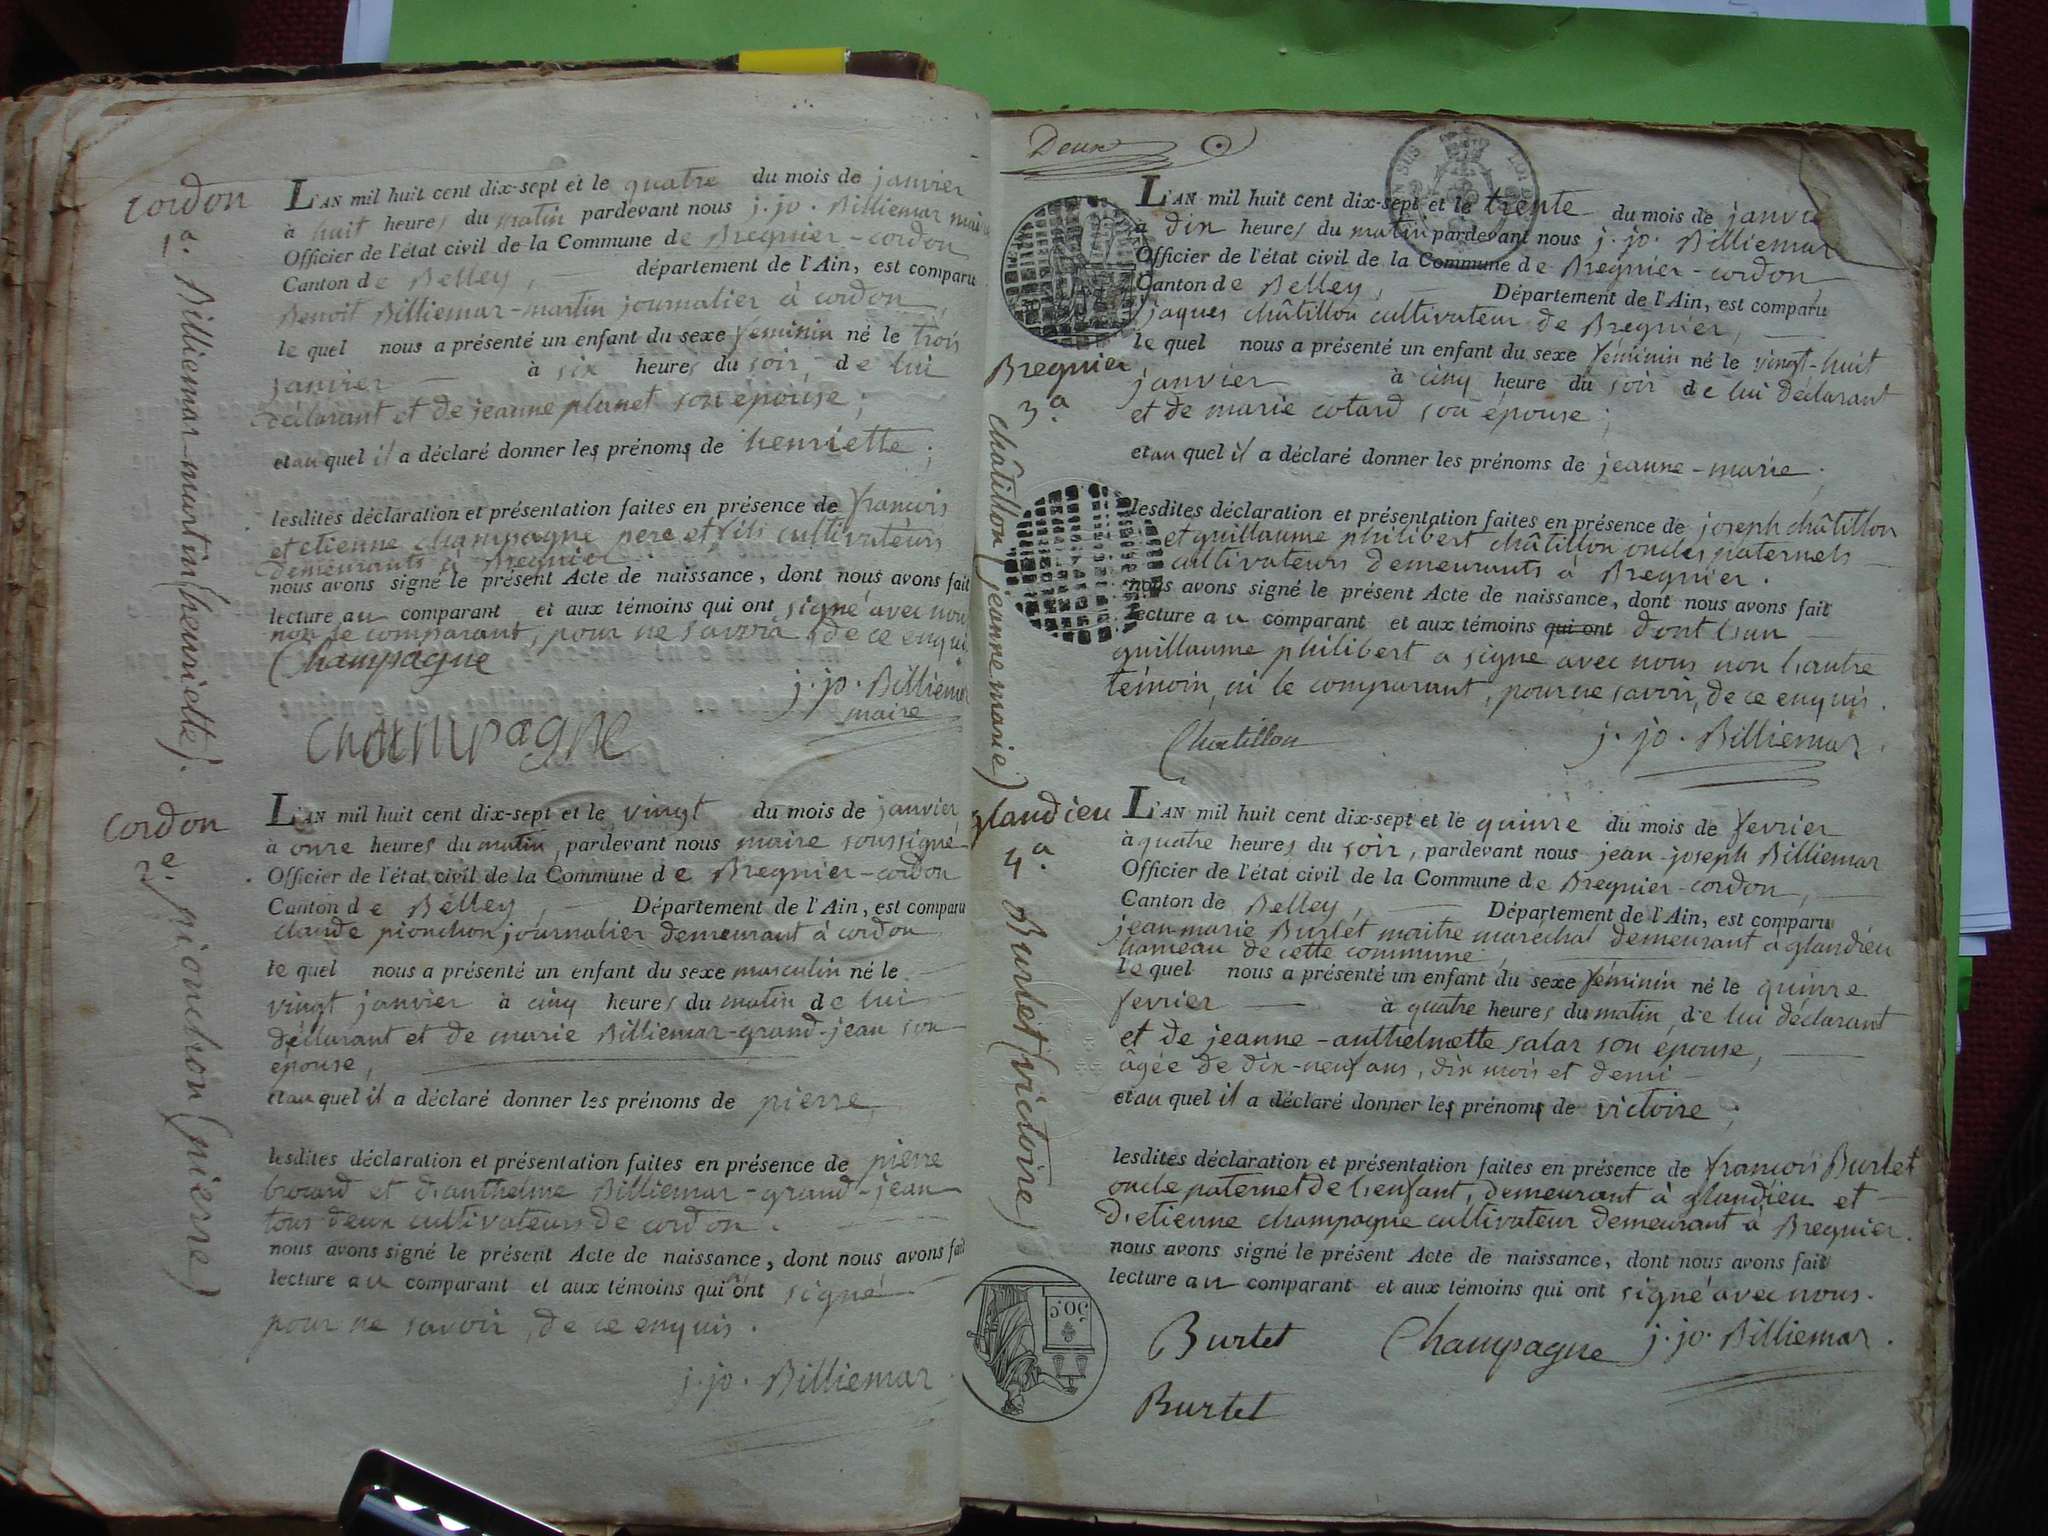 cordon
1.a Billiemar-martin (henriette).
L'AN mil huit cent dix-sept et le quatre du mois de janvier
à huit heures du matin pardevant nous j. jo. Billiemar maire
Officier de l'état civil de la Commune de Bregnier-cordon
Canton de Belley, département de l'Ain, est comparu
Benoit Billiemar-martin journalier à cordon
le quel nous a présenté un enfant du sexe feminin né le trois
janvier à six heures du soir, de lui
déclarant et de jeanne planet son épouse;
et au quel il a déclaré donner les prénoms de henriette;
lesdites déclaration et présentation faites en présence de francois
et etienne champagne pere et fils cultivateurs
demeurants à Bregnier
nous avons signé le présent Acte de naissance, dont nous avons fait
lecture au comparant et aux témoins qui ont signé avec nous
non le comparant, pour ne savoir de ce enquis
Champagne
j. jo. Billiemar
maire
Champagne
cordon
2.e pionchon (pierre)
L'AN mil huit cent dix-sept et le vingt du mois de janvier
à onze heures du matin, pardevant nous maire soussigné
Officier de l'état civil de la Commune de Bregnier-cordon
Canton de Belley, Département de l'Ain, est comparu
claude pionchon journalier demeurant à cordon
le quel nous a présenté un enfant du sexe masculin né le
vingt janvier à cinq heures du matin de lui
déclarant et de marie Billiemar-grand-jean son
épouse,
et au quel il a déclaré donner les prénoms de pierre,
lesdites déclaration et présentation faites en présence de pierre
brocard et d'anthelme Billiemar-grand-jean
tous deux cultivateurs de cordon.
nous avons signé le présent Acte de naissance, dont nous avons fait
lecture au comparant et aux témoins qui ont signé
pour ne savoir, de ce enquis.
j. jo. Billiemar
Deux
Bregnier
3.a châtillon (jeanne marie)
L'AN mil huit cent dix-sept et le trente du mois de janvier
à dix heures du matin pardevant nous j. jo. Billiemar
Officier de l'état civil de la Commune de Bregnier-cordon
Canton de Belley, Département de l'Ain, est comparu
jaques châtillon cultivateur de Bregnier,
le quel nous a présenté un enfant du sexe féminin né le vingt-huit
janvier à cinq heure du soir de lui déclarant
et de marie cotard son épouse;
et au quel il a déclaré donner les prénoms de jeanne-marie;
lesdites déclaration et présentation faites en présence de joseph châtillon
et guillaume philibert châtillon oncles paternels
cultivateurs demeurants à Bregnier.
nous avons signé le présent Acte de naissance, dont nous avons fait
lecture au comparant et aux témoins qui ont dont l'un
guillaume philibert a signé avec nous non l'autre
témoin, ni le comparant, pour ne savoir, de ce enquis.
Chatillon
j. jo. Billiemar
glandieu
4.a Burlet (victoire)
L'AN mil huit cent dix-sept et le quinze du mois de fevrier
à quatre heures du soir, pardevant nous jean-joseph Billiemar
Officier de l'état civil de la Commune de Bregnier-cordon,
Canton de Belley, Département de l'Ain, est comparu
jean marie Burlet maitre marechal demeurant à glandieu
hameau de cette commune
le quel nous a présenté un enfant du sexe féminin né le quinze
fevrier à quatre heures du matin, de lui déclarant
et de jeanne-anthelmette salar son épouse,
âgée de dix-neuf ans, dix mois et demi
et au quel il a déclaré donner les prénoms de victoire;
lesdites déclaration et présentation faites en présence de francois Burlet
oncle paternel de l'enfant, demeurant à glandieu et
d'etienne champagne cultivateur demeurant à Bregnier.
nous avons signé le présent Acte de naissance, dont nous avons fait
lecture au comparant et aux témoins qui ont signé avec nous.
Burlet Champagne j. jo. Billiemar.
Burlet
50.c